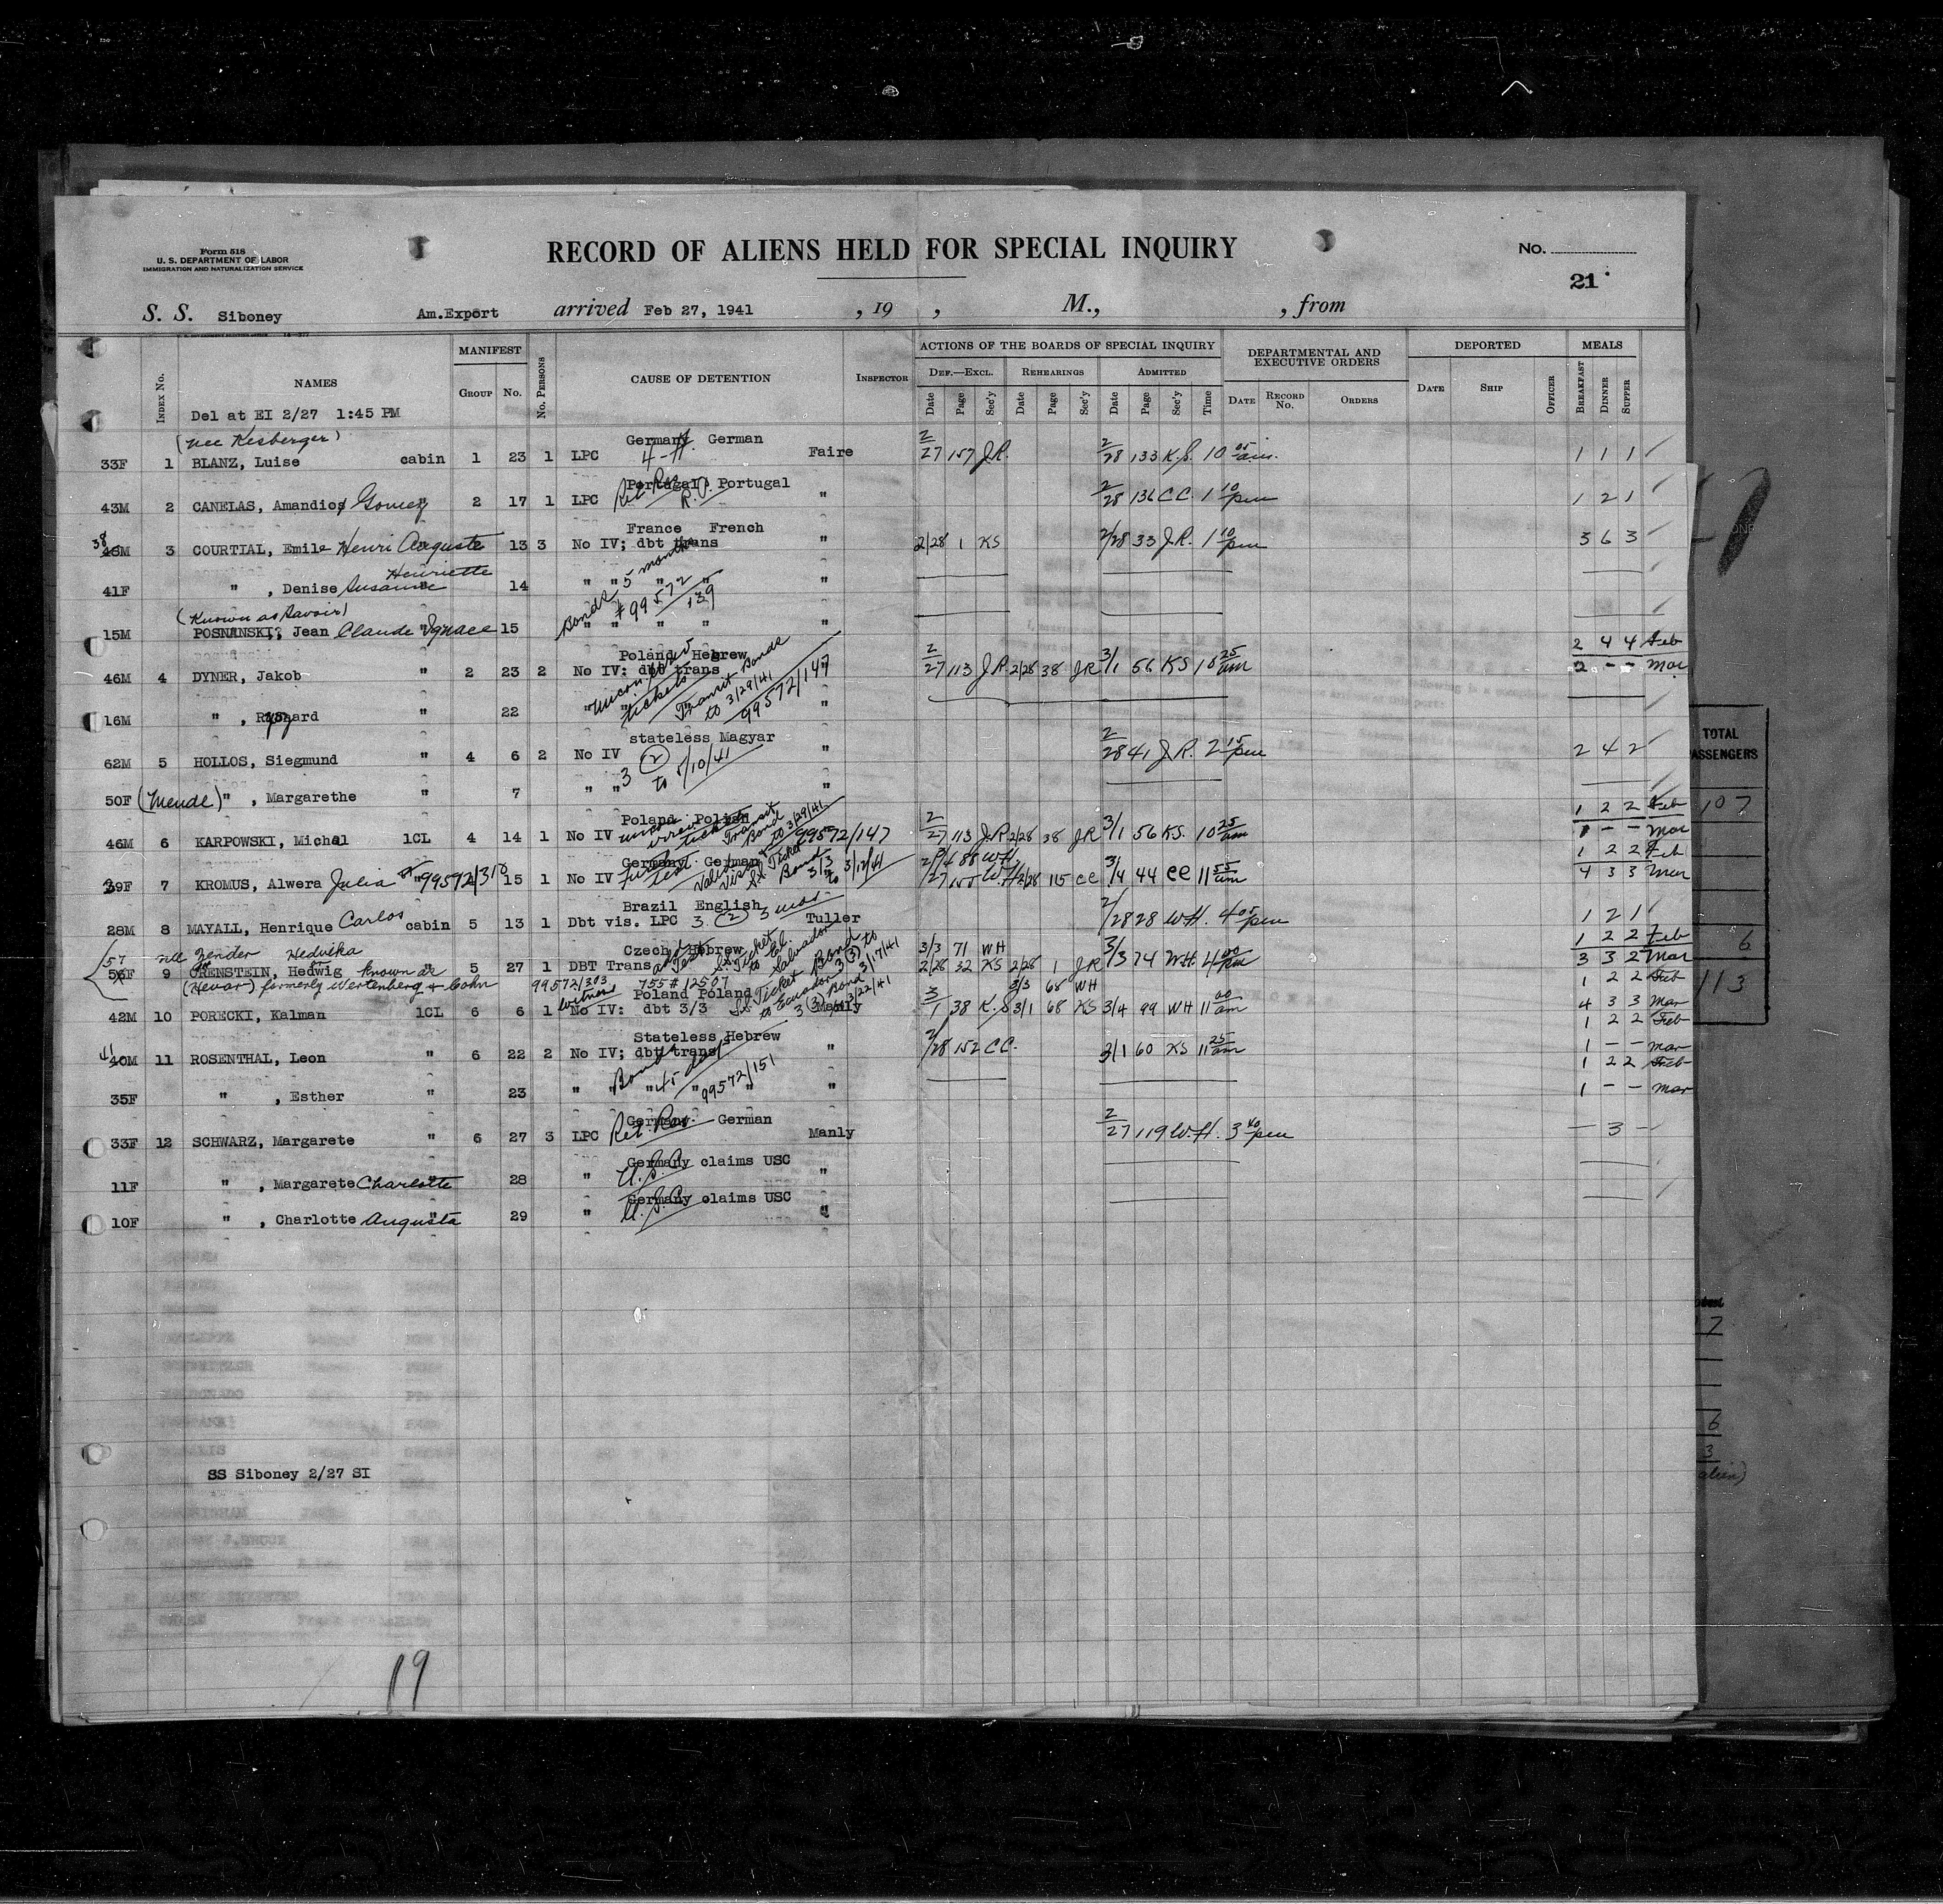 Form 518
U. S. DEPARTMENT OF LABOR
IMMIGRATION AND NATURALIZATION SERVICE
RECORD OF ALIENS HELD FOR SPECIAL INQUIRY
No.
21
S. S. Siboney Am.Export arrived Feb 27, 1941 , 19 , M., , from
Index No. NAMES MANIFEST Group No. No. Persons CAUSE OF DETENTION Inspector ACTIONS OF THE BOARDS OF SPECIAL INQUIRY DEPARTMENTAL AND EXECUTIVE ORDERS DEPORTED MEALS
Def.—Excl. Rehearings Admitted
Date Page Sec'y Date Page Sec'y Date Page Sec'y Time Date Record No. Orders Date Ship Officer Breakfast Dinner Supper
Del at EI 2/27 1:45 PM
(nee Kesberger) Germany German
33F 1 BLANZ, Luise cabin 1 23 1 LPC 4-H Faire 2/27 157 J.R. 2/28 133 K.S. 10 05 am. 1 1 1
Portugal Portugal
43M 2 CANELAS, Amandio Gomez " 2 17 1 LPC Ret Res R.P. " 2/28 136 CC. 1 10 pm 1 2 1
France French
38 45M 3 COURTIAL, Emile Henri Auguste 13 3 No IV; dbt trans " 2/28 1 KS 2/28 33 J.R. 1 10 pm 3 6 3
Henriette 5 months
41F " , Denise Susanne 14 " " " " "
(Known as Savoir) Bonds #99572/139
15M POSNANSKI, Jean Claude Ignace 15 " " " " "
Poland Hebrew 2 4 4 Feb
46M 4 DYNER, Jakob " 2 23 2 No IV: dbt trans " 2/27 113 J.R. 2/28 38 JR 3/1 56 KS 10 25 am 2 - - Mar
tickets Transit Bonds to 3/29/41 99572/147
16M " , " 22 "
stateless Magyar
62M 5 HOLLOS, Siegmund " 4 6 2 No IV " 2/28 41 J.R. 2 15 pm 2 4 2
3 (2) to 5/10/41
50F (Mendl) " , Margarethe " 7 " " "
Poland Polish 1 2 2 Feb
46M 6 KARPOWSKI, Michal 1CL 4 14 1 No IV Transit Bond to 3/29/41 99572/147 2/27 113 J.R. 2/28 38 JR 3/1 56 KS. 10 25 am 1 - - Mar
Germany German 1 2 2 Feb
39F 7 KROMUS, Alwera Julia 99572/310 15 1 No IV further test. Valid Visa & SS Ticket Bond 3/3 to 3/12/41 88 WH 2/28 115 CC 3/4 44 CC 11 55 am 4 3 3 Mar
Brazil English
28M 8 MAYALL, Henrique Carlos cabin 5 13 1 Dbt vis. LPC 3 (2) 3 mos Tuller 2/28 28 W.H. 4 05 pm 1 2 1
57 nee Zender Hedvika Czech Hebrew 3/3 71 WH 1 2 2 Feb
56F 9 ORENSTEIN, Hedwig known as " 5 27 1 DBT Trans add Test SS Ticket to El Salvador Bond 3 (3) to 3/17/41 2/28 32 KS 2/28 1 JR 3/3 74 W.H. 4 00 pm 3 3 2 Mar
(Hevar) formerly Wertenberg & Cohn 99572/303 755 # 12507 3/3 68 WH 1 2 2 Feb
witness Poland Poland SS Ticket to Ecuador
42M 10 PORECKI, Kalman 1CL 6 6 1 No IV: dbt 3/3 3 (3) Bond to 3/22/41 Manly 3/1 38 K.S 3/1 68 KS 3/4 99 WH 11 00 am 4 3 3 Mar
Stateless Hebrew 1 2 2 Feb
41 40M 11 ROSENTHAL, Leon " 6 22 2 No IV; dbt trans " 2/28 152 CC. 3/1 60 KS 11 25 am 1 - - Mar
Bonds 45 days 99572/151 1 2 2 Feb
35F " , Esther " 23 " " " " " " 1 - - Mar
Germany German
33F 12 SCHWARZ, Margarete " 6 27 3 LPC Ret. Res. Manly 2/27 119 W.H. 3 40 pm - 3 -
Germany claims USC
11F " , Margarete Charlotte 28 " U.S.C. "
Germany claims USC
10F " , Charlotte Augusta 29 " U.S.C. "
SS Siboney 2/27 SI
19
TOTAL
PASSENGERS
107
6
113
7
6
3